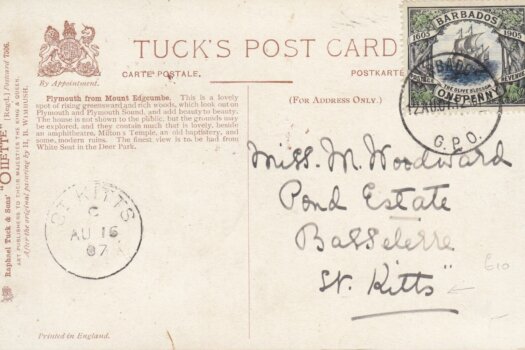 TUCK'S POST CARD
CARTE POSTALE.
POSTKARTE
By Appointment.
(FOR ADDRESS ONLY.)
Plymouth from Mount Edgcumbe. This is a lovely
spot of rising greensward and rich woods, which look out on
Plymouth and Plymouth Sound, and add beauty to beauty.
The house is not shown to the public, but the grounds may
be explored, and they contain much that is lovely, beside
an amphitheatre, Milton's Temple, an old baptistery, and
some modern ruins. The finest view is to be had from
White Seat in the Deer Park.
Raphael Tuck & Sons' "OILETTE" [Regd.] Postcard 7506.
ART PUBLISHERS TO THEIR MAJESTIES THE KING & QUEEN.
After the original painting by H. B. WIMBUSH.
BARBADOS
1605 1905
OLIVE BLOSSOM
ONE PENNY
BARBADOS
12 AU 07
G.P.O.
Miss. M. Woodward
Pond Estate
Basseterre
St. Kitts"
£10
ST. KITTS
C
AU 16
07
Printed in England.